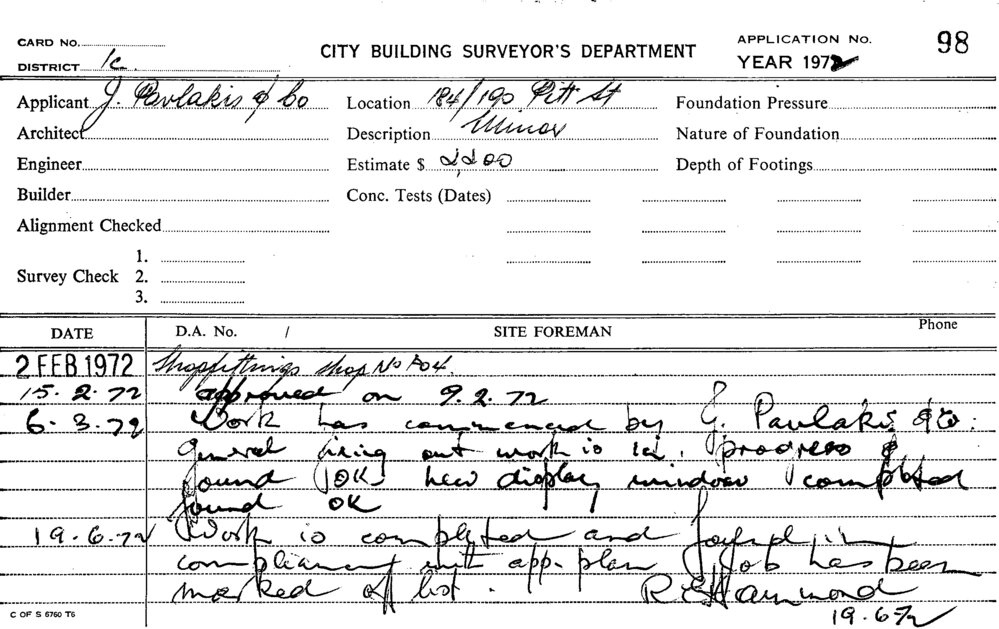 CARD No.
DISTRICT 1c.
CITY BUILDING SURVEYOR'S DEPARTMENT
APPLICATION No. 98
YEAR 1972
Applicant J. Pavlakis & Co
Location 184/190 Pitt St
Foundation Pressure
Architect
Description Minor
Nature of Foundation
Engineer
Estimate $ 2200
Depth of Footings
Builder
Conc. Tests (Dates)
Alignment Checked
Survey Check
1.
2.
3.
DATE D.A. No. / SITE FOREMAN Phone
2 FEB 1972 Shopfittings shop No
15.2.72 approved on 9.2.72
6.3.72 Work has commenced by J. Pavlakis & Co.
general fixing out work is in progress &
found OK new display window completed
found OK
19.6.72 Work is completed and found in
compliance with app. plan Job has been
marked off list. R E Hammond
19.6.72
C OF S 6760 T6